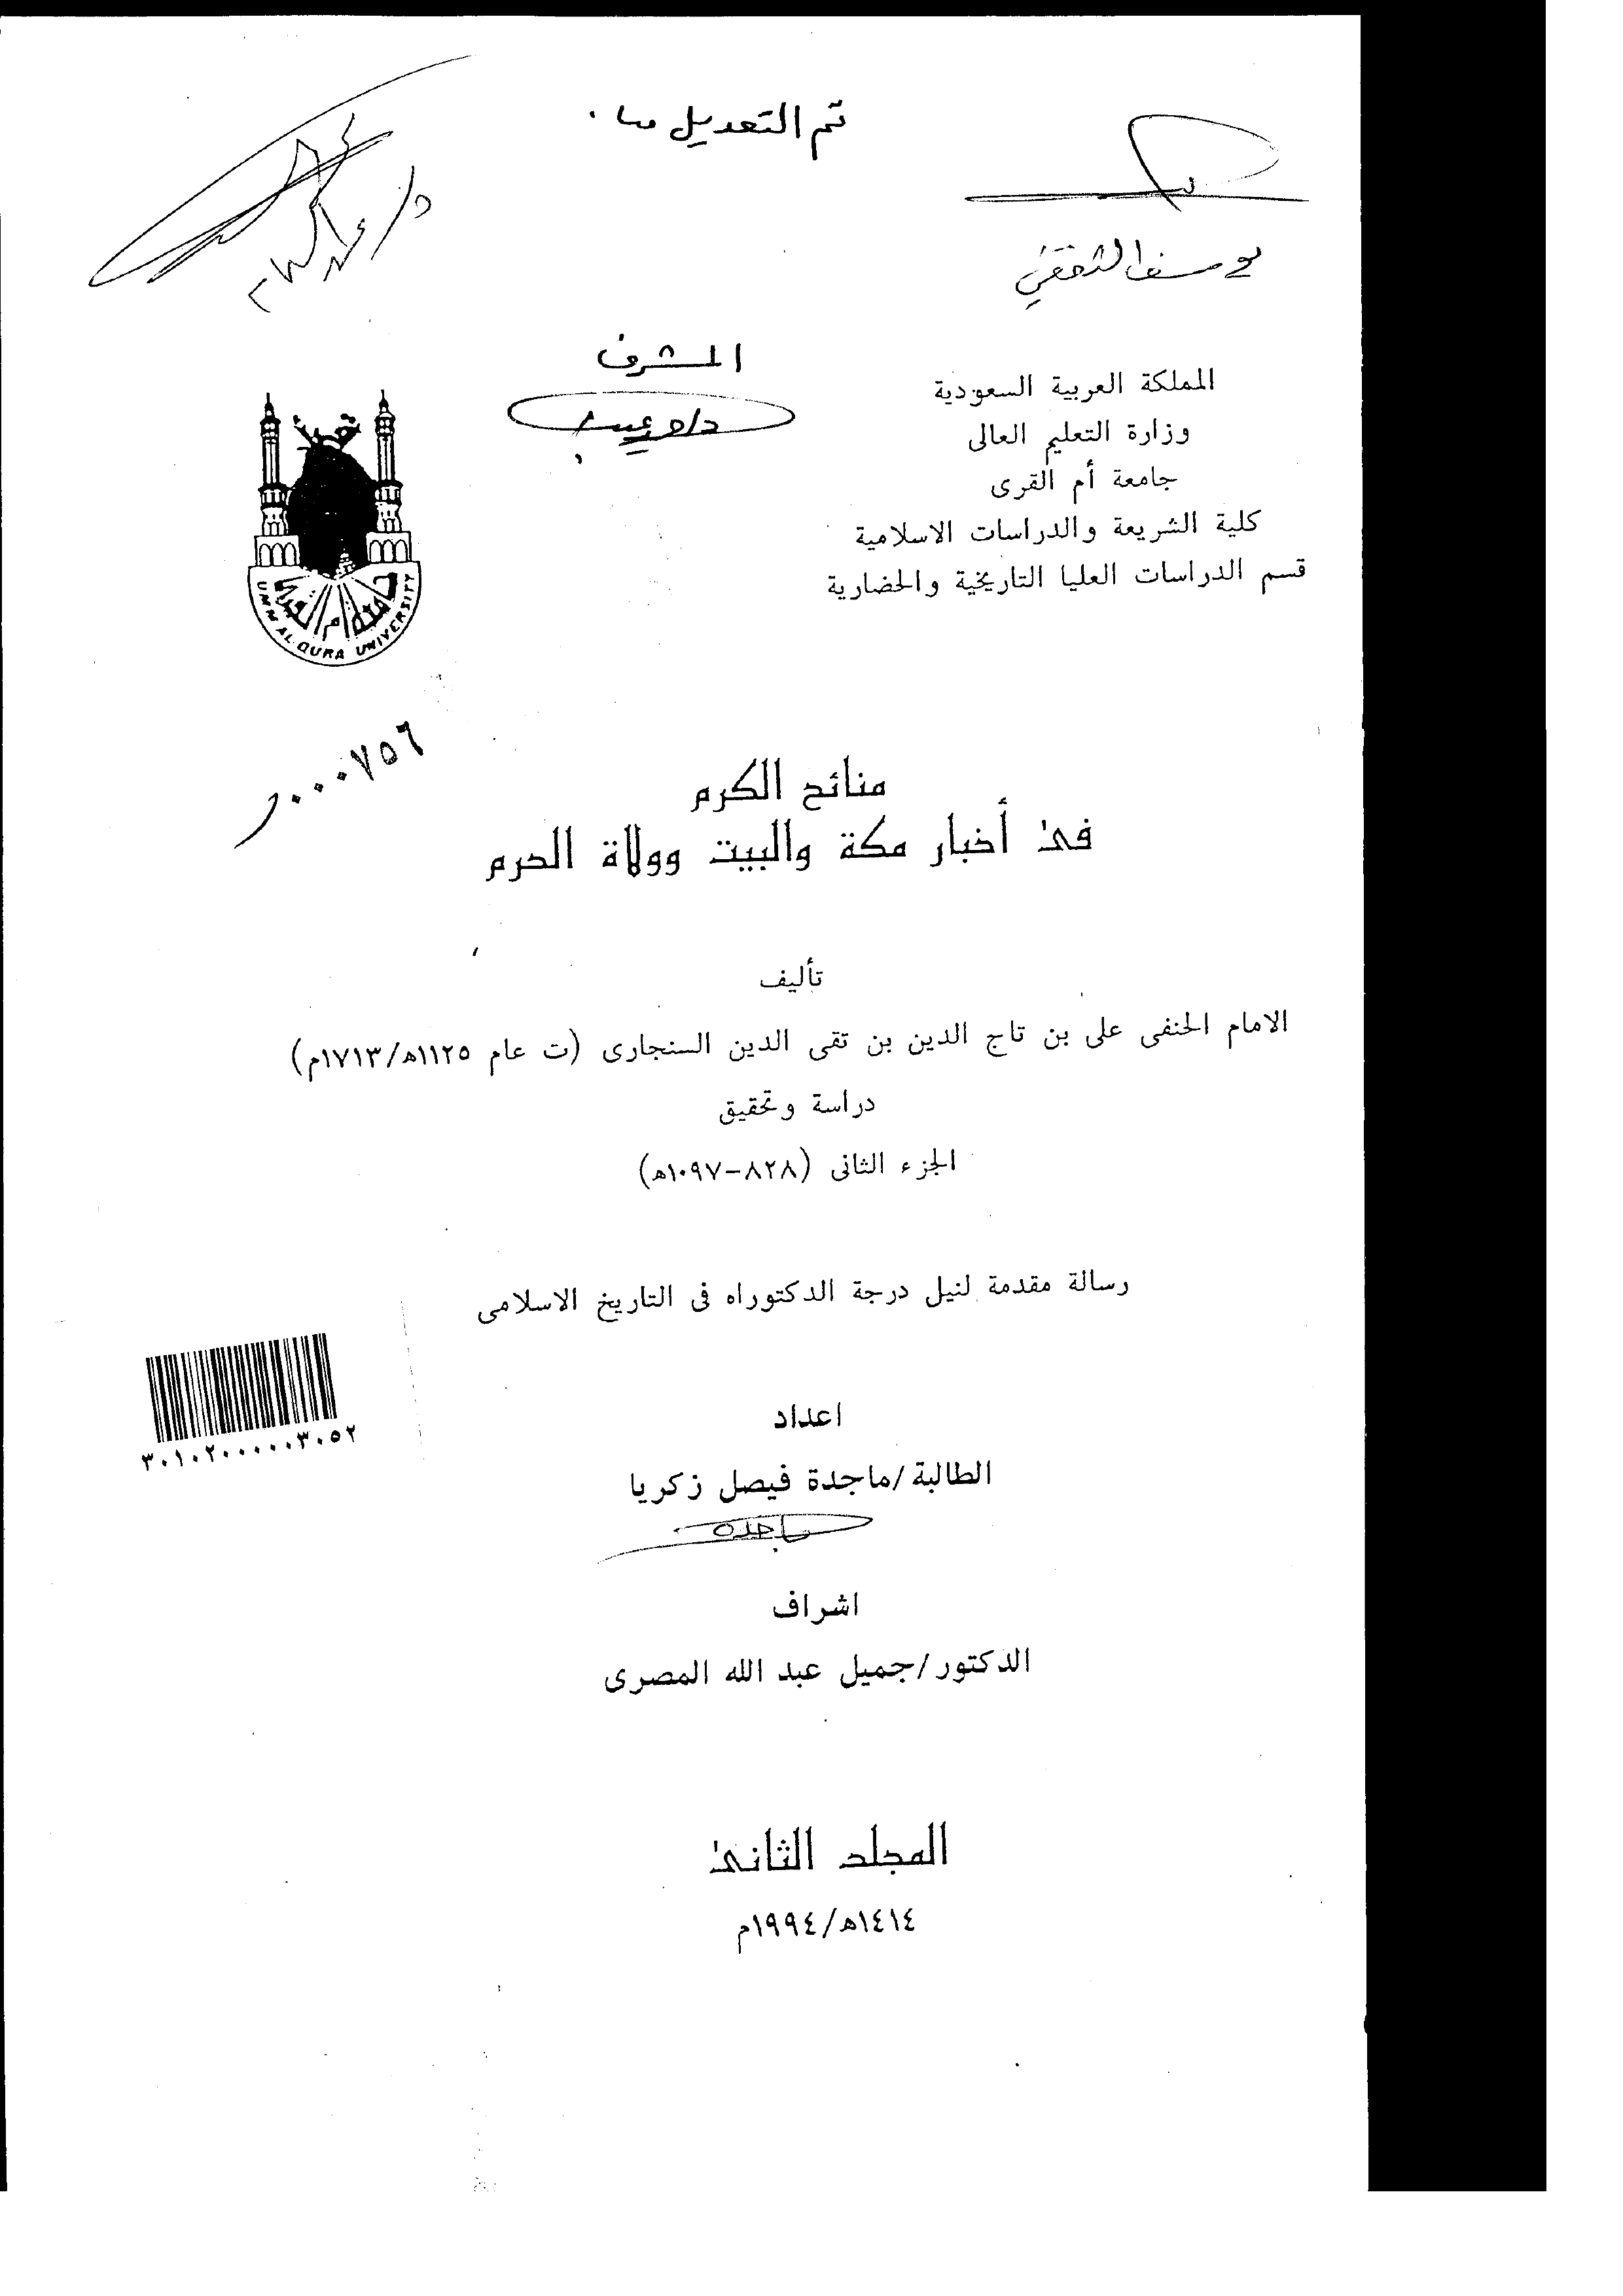 تم التعديل
يوسف الثقفي
المشرف
المملكة العربية السعودية
وزارة التعليم العالى
جامعة أم القرى
كلية الشريعة والدراسات الاسلامية
قسم الدراسات العليا التاريخية والحضارية
جامعة أم القرى
UMM AL-QURA UNIVERSITY
٠٠٠٧٥٦
منائح الكرم
فى أخبار مكة والبيت وولاة الحرم
تأليف
الامام الحنفى على بن تاج الدين بن تقى الدين السنجارى (ت عام ١١٢٥ھ/١٧١٣م)
دراسة وتحقيق
الجزء الثانى (٨٢٨-١٠٩٧ھ)
رسالة مقدمة لنيل درجة الدكتوراه فى التاريخ الاسلامى
٣٠١٠٢٠٠٠٠٠٣٠٥٢
اعداد
الطالبة/ماجدة فيصل زكريا
ماجده
اشراف
الدكتور/جميل عبد الله المصرى
المجلد الثانى
١٤١٤ھ/١٩٩٤م